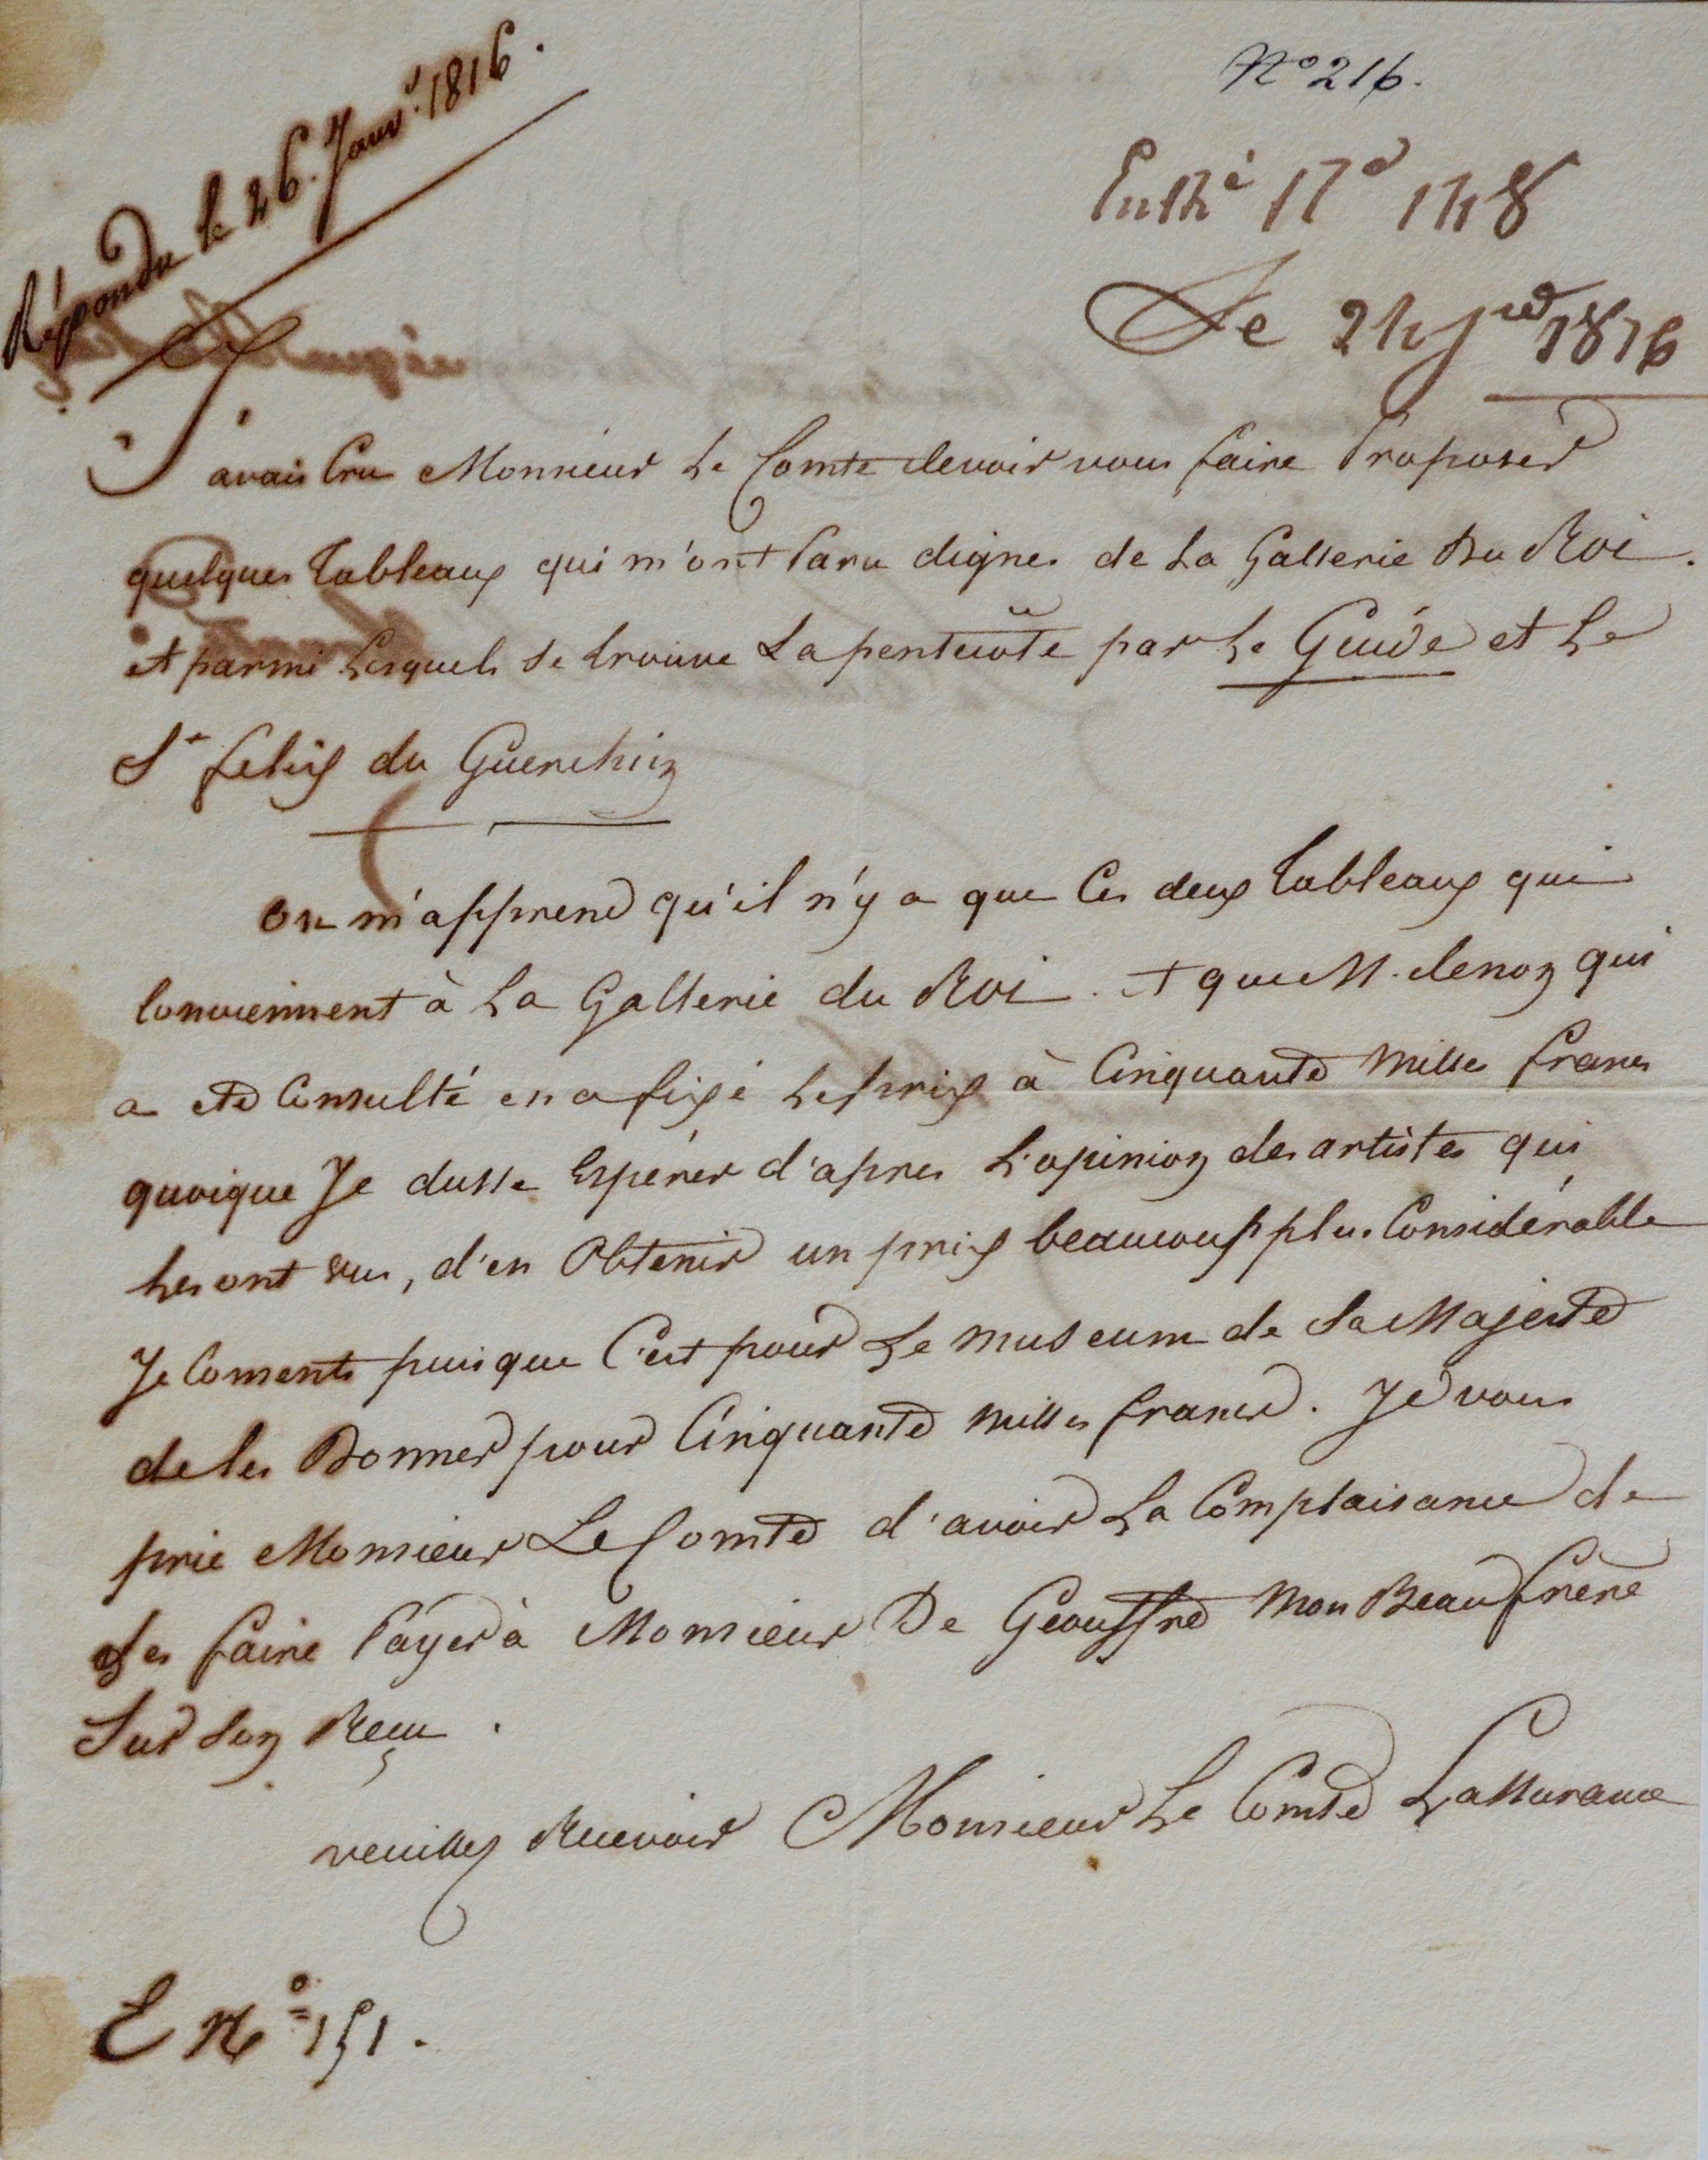 Répondu le 26. Janvr. 1816.
No 216.
Le 24 jer 1816
J'avais Cru Monsieur Le Comte devoir vous faire Proposer
quelques tableaux qui m'ont Paru dignes de La Gallerie Du Roi.
et parmi Lesquels se trouve La pentecôte par Le Guide et Le
St felix du Guerchin
on m'apprend qu'il n'y a que Ces deux tableaux qui
Conviennent à La Gallerie du Roi. et que M. denon qui
a eté Consulté en a fixé Le prix à Cinquante Mille francs
quoique Je dusse Espérer d'apres L'opinion des artistes qui
Les ont vus, d'en Obtenir un prix beaucoup plus Considérable
Je Consents puisque C'est pour Le museum de Sa Majesté
de les Donner pour Cinquante milles francs. Je vous
prie Monsieur Le Comte d'avoir La Complaisance de
Les faire Payer à Monsieur De Geouffre Mon Beau frère
Sur Son Recu.
veuillez Recevoir Monsieur Le Comte L'assurance
E No 151.